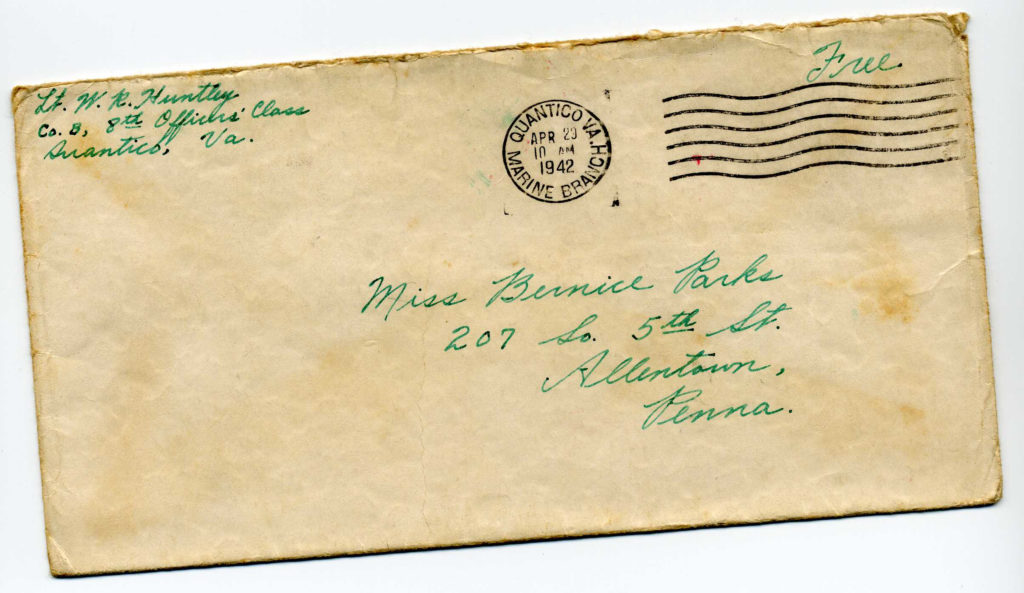 Lt. W. R. Huntley
Co. B, 8th Officers' Class
Quantico, Va.
QUANTICO VA.
APR
10 AM
1942
MARINE BRANCH
Free
Miss Bernice Parks
207 So. 5th St.
Allentown,
Penna.